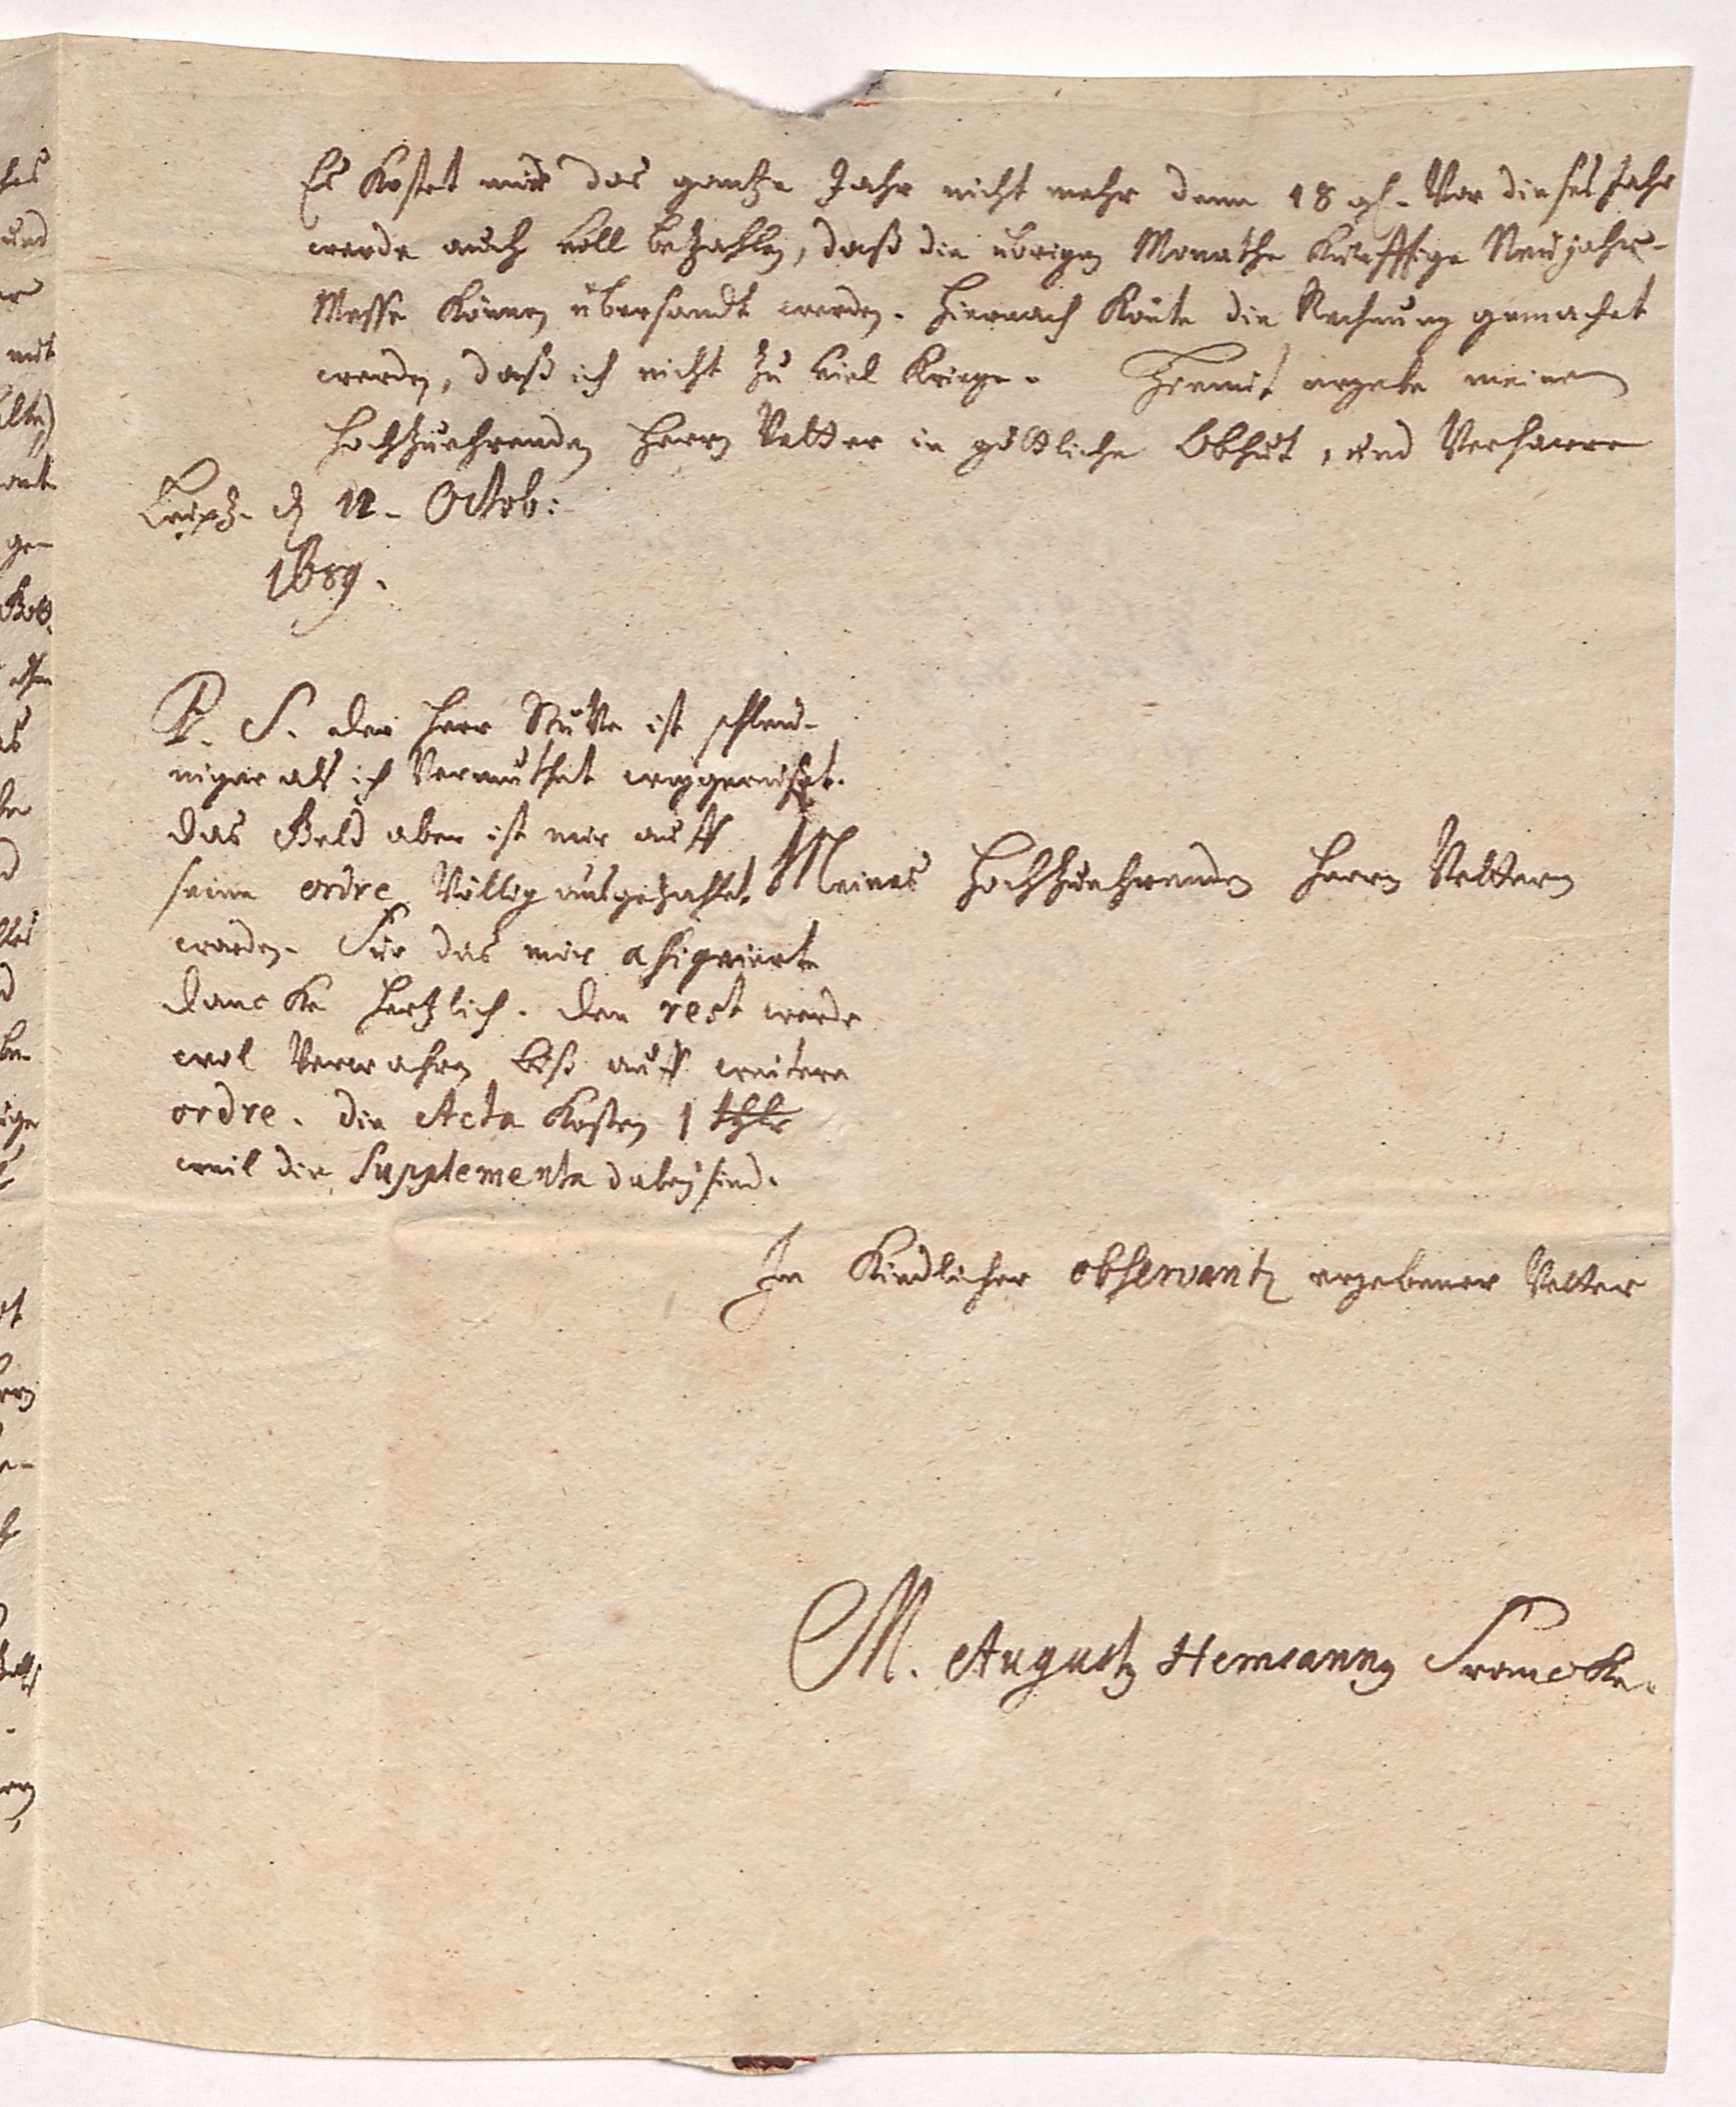 Es kostet mir das gantze Jahr nicht mehr denn 18 gl. Vor dieses Jahr
werde auch voll bezahlen, daß die übrigen Monathe künfftige Neujahrs-
Messe können übersandt werden. Hiernach könte die Rechnung gemachet
werden, daß ich nicht zu viel kriege. Hiemit ergebe meinen
Hochzuehrenden Herrn Vetter in göttliche Obhut, und Verharre
Leipz. d 12. Octob:
1689.
P. S. der Herr ist schleu-
niger als ich vermuthet weggereiset.
das Geld aber ist mir auff
seine ordre völlig ausgezahlet
worden. Für das mir assignirte
dancke hertzlich. den rest werde
wol verwahren biß auff weitere
ordre. die Acta kosten 1 thlr
weil die Supplementa dabey sind.
Meines Hochzuehrenden Herrn Vettern
In kindlicher observantz ergebener Vetter
M. Augustq Hermannq Francke.